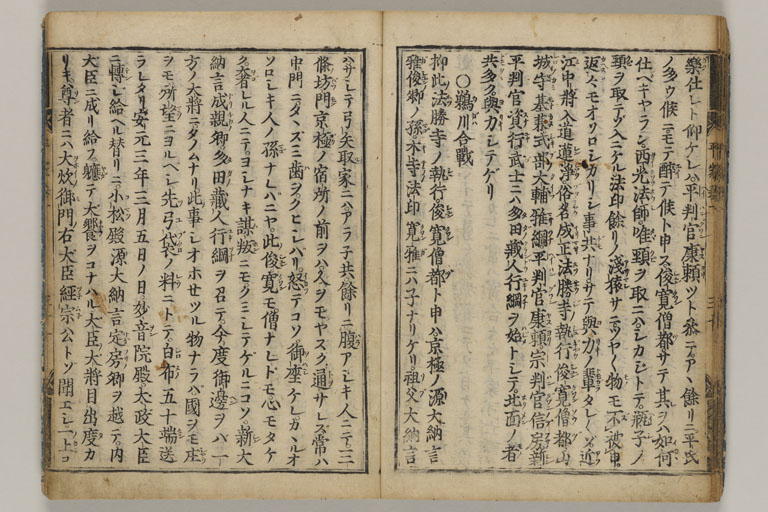 樂仕レト仰ケレハ平判官康頼ツト参テアヽ餘リニ平氏
ノ多ウ候ニモテ醉テ候ト申ス俊寛僧都サテ其ヲハ如何
仕ヘキヤラン西光法師唯頸ヲ取ニハシカシトテ瓶子ノ
頸ヲ取テソ入ニケル法印餘リノ浅猿サニツヤ〱物モ不被申
返々モオソロシカリシ事共ナリサテ與力ノ輩タレ〱ソ近
江中將入道蓮浄俗名成正法勝寺ノ執行俊寛僧都山
城守基兼式部大輔雅綱平判官康頼宗判官信房新
平判官資行武士ニハ多田藏人行綱ヲ始トシテ北面ノ者
共多ク與力シテゲリ
〇鵜川合戰
抑此法勝寺ノ執行俊寛僧都ト申ハ京極ノ源大納言
雅俊卿ノ孫木寺法印寛雅ニハ子ナリケリ祖父大納言
ハサシテ弓矢取家ニハアラ子共餘リニ腹アシキ人ニテ三
條坊門京極ノ宿所ノ前ヲハ人ヲモヤスク通サレス常ハ
中門ニタヽズミ齒ヲクヒシバリ怒テコソ御座ケレカヽルオ
ソロシキ人ノ孫ナレハニヤ此俊寛モ僧ナレドモ心モタケ
ク奢レル人ニテヨシナキ謀叛ニモクミシテゲルニコソ新大
納言成親卿多田藏人行綱ヲ召テ今度御邊ヲハ一
方ノ大將ニタノムナリ此事シオホせツル物ナラハ國ヲモ庄
ヲモ所望ニヨルベシ先弓袋ノ料ニトテ白布五十端送
ラレタリ安元三年三月五日ノ日妙音院殿太政大臣
ニ轉シ給ヘル替リニ小松殿源大納言定房卿ヲ越テ内
大臣ニ成リ給フ軈テ大饗ヲコナハル大臣大將目出度カ
リキ尊者ニハ大炊御門右大臣經宗公トソ聞エシ一上コ